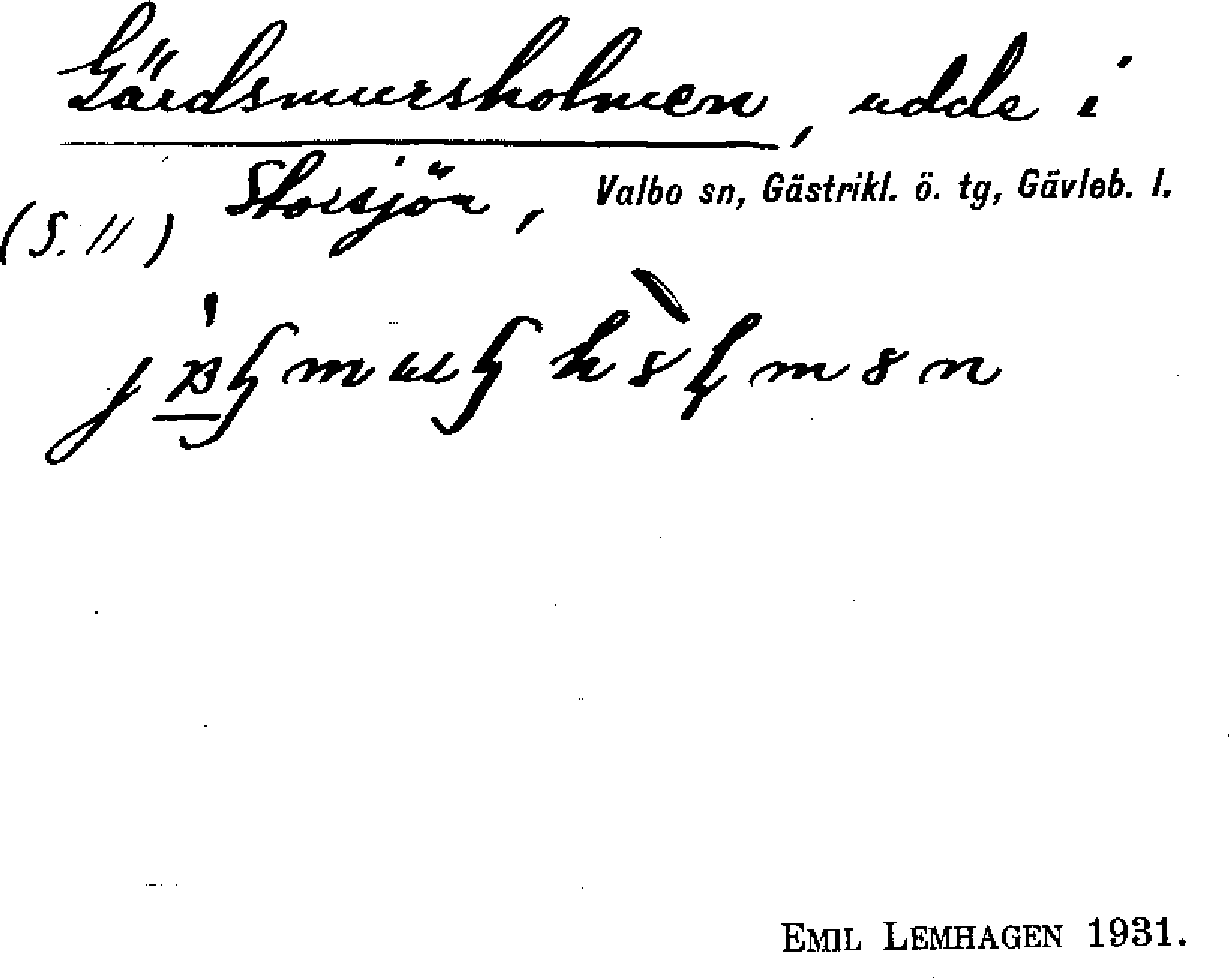 Gärdsmursholmen, udde i
Storsjön, Valbo sn, Gästrikl. ö. tg, Gävleb. l.
(S. 11)
EMIL LEMHAGEN 1931.